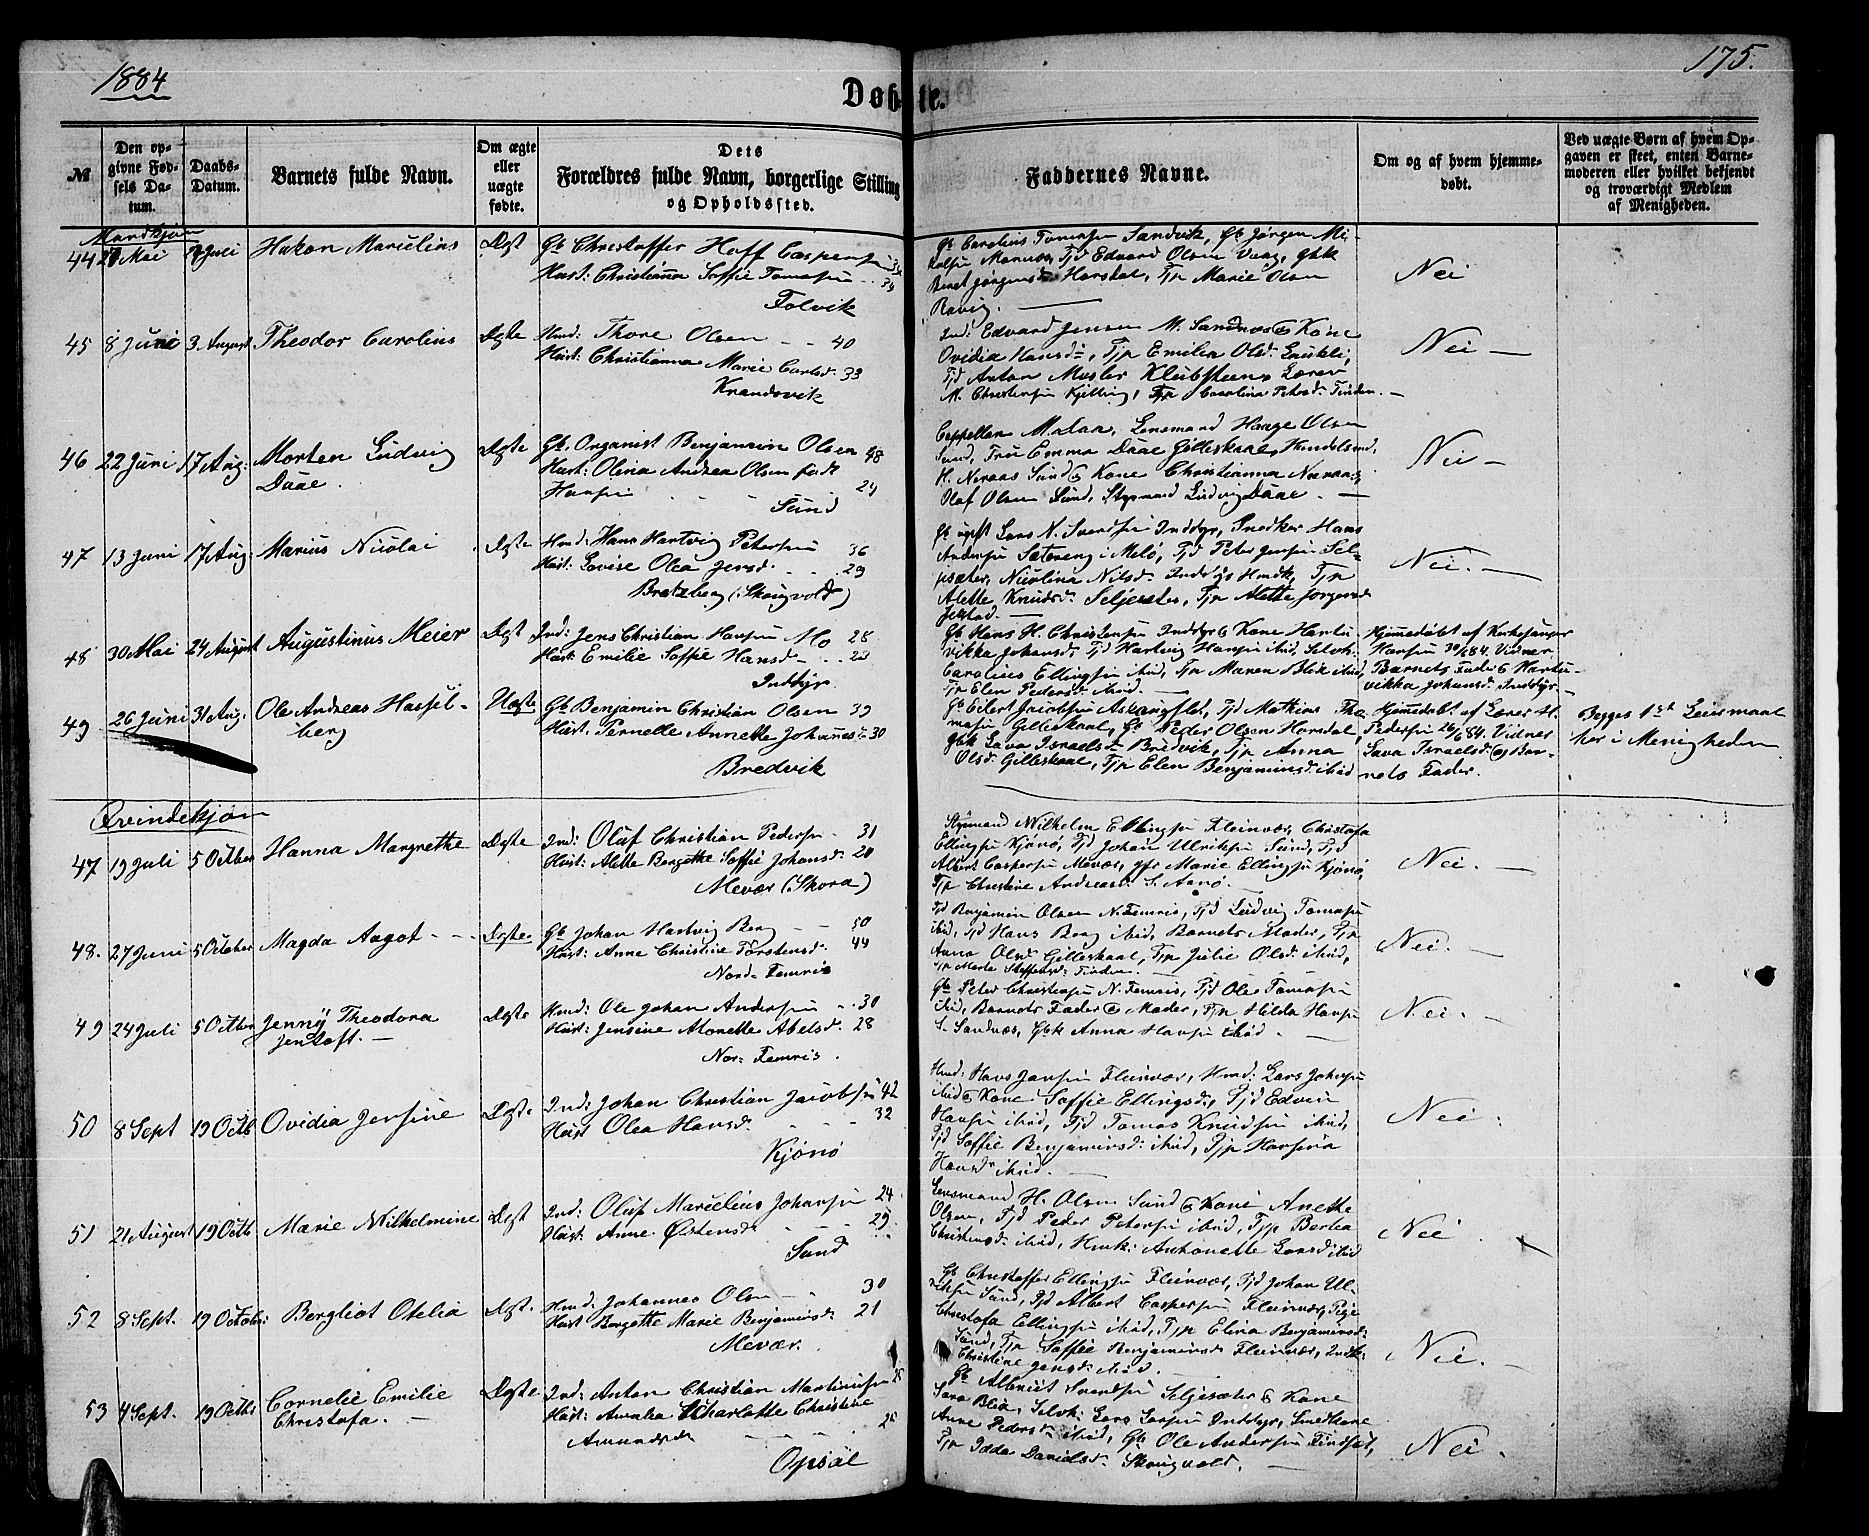 1884
175.
Døbte.
№
Den opgivne Fødsels Datum.
Daabs-Datum.
Barnets fulde Navn.
Om ægte eller uægte fødte.
Dets Forældres fulde Navn, borgerlige Stilling og Opholdssted.
Faddernes Navne.
Om og af hvem hjemmedøbt.
Ved uægte Børn af hvem Opgaven er skeet, enten Barnemoderen eller hvilket bekjendt og troværdigt Medlem af Menigheden.
Mandkjøn
44 Mai Juli Hakon Marcelius Ægt Gb Christoffer Hoff Caspersen
Hust: Christianna Soffie Tomassen
Folvik
Gb Carolius Tomassen Sandvik, Gb Jørgen
Tjd Edvard Olsen Vaag, Gbk
Beret Jørgens Harsdal, Tjp Marie Olsen
Nei
45 8 Juni 3. August Theodor Carolius Ægte Hmd: Thore Olsen 40
Hust: Christianna Marie Carlsd: 33
Krandsvik
Ind: Edvard Jensen M. Sandnes & Kone
Ovidia Hansd:, Tjp Emilia Olsd.
Tjd Anton Lærer
M. Christensen Kjelling, Tjp Carolina Petersd: Finden.
Nei
46 22 Juni 17 Aug: Morten Ludvig Ægte Gb. Organist Benjamin Olsen 48
Daae. Hust: Olina Andrea Olsen født
Hansen 29
Sund
Cappellan Lensmand Haage Olsen
Sund, Fru Emma Daae Gilleskaal, Handelsmd.
H. Neraas Sund & Kone Christianna Neraas,
Olaf Olsen Sund, Styrmand Ludvig Daae.
Nei
47 13 Juni 17 Aug: Marius Nicolai Ægte Hmd: Hans Hartvig Petersen 36
Hust: Lovise Olea Jensd. 29
Bratberg (Skougvold)
Gb Lars N. Svendsen Inddyr, Snedker Hans
Andersen Sætereng i Melø, Tjd Peter Jensen Sel-
sæter, Nicolina Nilsd. Inddyr Hmdk, Tjp
Alette Knudsd. Seljesæter, Tjp Alette Jørgens
Nei.
48 30 Mai 24 August Augustinus Meier Ægt Ind: Jens Christian Hansen Mo 28
Hust: Emilie Soffie Hansd 28
Inddyr
Gb Hans H. Christensen Inddyr & Kone Hartvikka
Johansd: Tjd Hartvig Hansen ibid,
Carolius Ellingsen ibid, Tjp Maren Blik ibid,
Tjp Elen Pedersd ibid.
Hjemmedøbt af Kirkesanger
Hansen 84. Vidner
Barnets Fader & Hartvikka
Johansd: Inddyr.
49 26 Juni 31 Aug. Ole Andreas Hassel- Uægte Gb Benjamin Christian Olsen 39
berg Hust. Pernelle Annette Johannesd: 30
Bredvik
Gb Edert Jacobsen Tjd Mathias Tho-
masen Gilleskaal, Gb Peder Olsen Harsdal,
Gbk Lava Israelsd: Bredvik, Tjp Anna
Olsd. Gilleskaal, Tjp Elen Benjaminsd. ibid
Hjemmedøbt af Lærer H.
Pedersen 26/6 84. Vidner
Lava Israelsd: og Bar-
nets Fader.
Begges 1st Leiermaal
her i Menigheden
Qvindekjøn
47 19 Juli 5 October Hanna Margrethe Ægte Ind: Oluf Christian Pedersen 31
Hust: Alette Bergitte Soffie Johansd: 20
Mevær (Skora)
Styrmand Wilhelm Ellingsen Fleinvær, Christofa
Ellingsen Kjønø, Tjd Johan Ulriksen Sund, Tjd
Albert Caspersen Mevær, Marie Ellingsen Kjønø,
Tjp Christine Andreasd. S. Arnø.
Nei.
48. 27 Juni 5 October Magda Aagot Ægte Gb Johan Hartvig Berg 50
Hust: Anne Christine Torstensd. 44
Nord-Femris
Tjd Benjamin Olsen N. Femris, Tjd Ludvig Tomassen
ibid, Tjd Hans Berg ibid, Barnets Moder, Tjp
Anna Olsd Gilleskaal, Tjp Julie Olsd. ibid,
Tjp Marta Steffensd: Finden.
Nei.
49 24 Juli 5 Octbr Jenny Theodora Ægte Hmd: Ole Johan Andersen 30
Jentoft. Hust: Jensine Alonette Abelsd. 28
Nor: Femris.
Gb Peter Christensen N. Femris, Tjd Ole Tomassen
ibid, Barnets Fader & Moder, Tjp Hilda Hansen
S. Sandnæs, Gbk Anna Hansen ibid.
Nei.
50 8 Sept 19 Octb Ovidia Jensine Ægte Ind: Johan Christian Jacobsen 42
Hust Olea Hansd. 32
Kjønø
Hmd: Hans Jansen Fleinvær, Hmd: Lars Johnsen
ibid & Kone Soffie Ellingsd, Tjd Edvin
Hansen ibid, Tjd Tomas Knudsen ibid,
Tjd Soffie Benjaminsd: ibid, Tjp Hansina
Hansd: ibid.
Nei.
51 21 August 19 Octb. Marie Wilhelmine Ægt Ind: Oluf Marcelius Johansen 24
Hust: Anne Østensd 29.
Sund
Lensmand H. Olsen Sund & Kone Anette
Olsen, Tjd Peder Petersen ibid, Tjp Berthea
Christensd: ibid, Hmk: Antonette Larsd ibid
Nei
52 8 Sept. 19 October: Bergliot Otelia Ægt. Hmd. Johannes Olsen 30
Hust Bergitte Marie Benjaminsd: 21
Mevær.
Gb Christoffer Ellingsen Fleinvær, Tjd Johan Ul-
riksen Sund, Tjd Albert Caspersen Fleinvær, Pige
Christofa Ellingsen ibid, Tjp Elina Benjaminsd:
Sund, Tjp Soffie Benjaminsd Fleinvær, Indk:
Christine Jensd: ibid.
Nei.
53 4 Sept. 19 Octbr Cornelie Emilie Ægte Ind: Anton Christian Martinussen 25
Christofa. Hust: Amalia Charlotte Christine
Amundsd. 25
Opsøl
Gb Albrigt Svendsen Seljesæter & Kone
Sara Blix, Selvk: Lars Larsen Inddyr, Smedkone
Anne Pedersd ibid, Gb Ole Andersen Findset,
Tjp Idda Danielsd. Skougvold.
Nei.